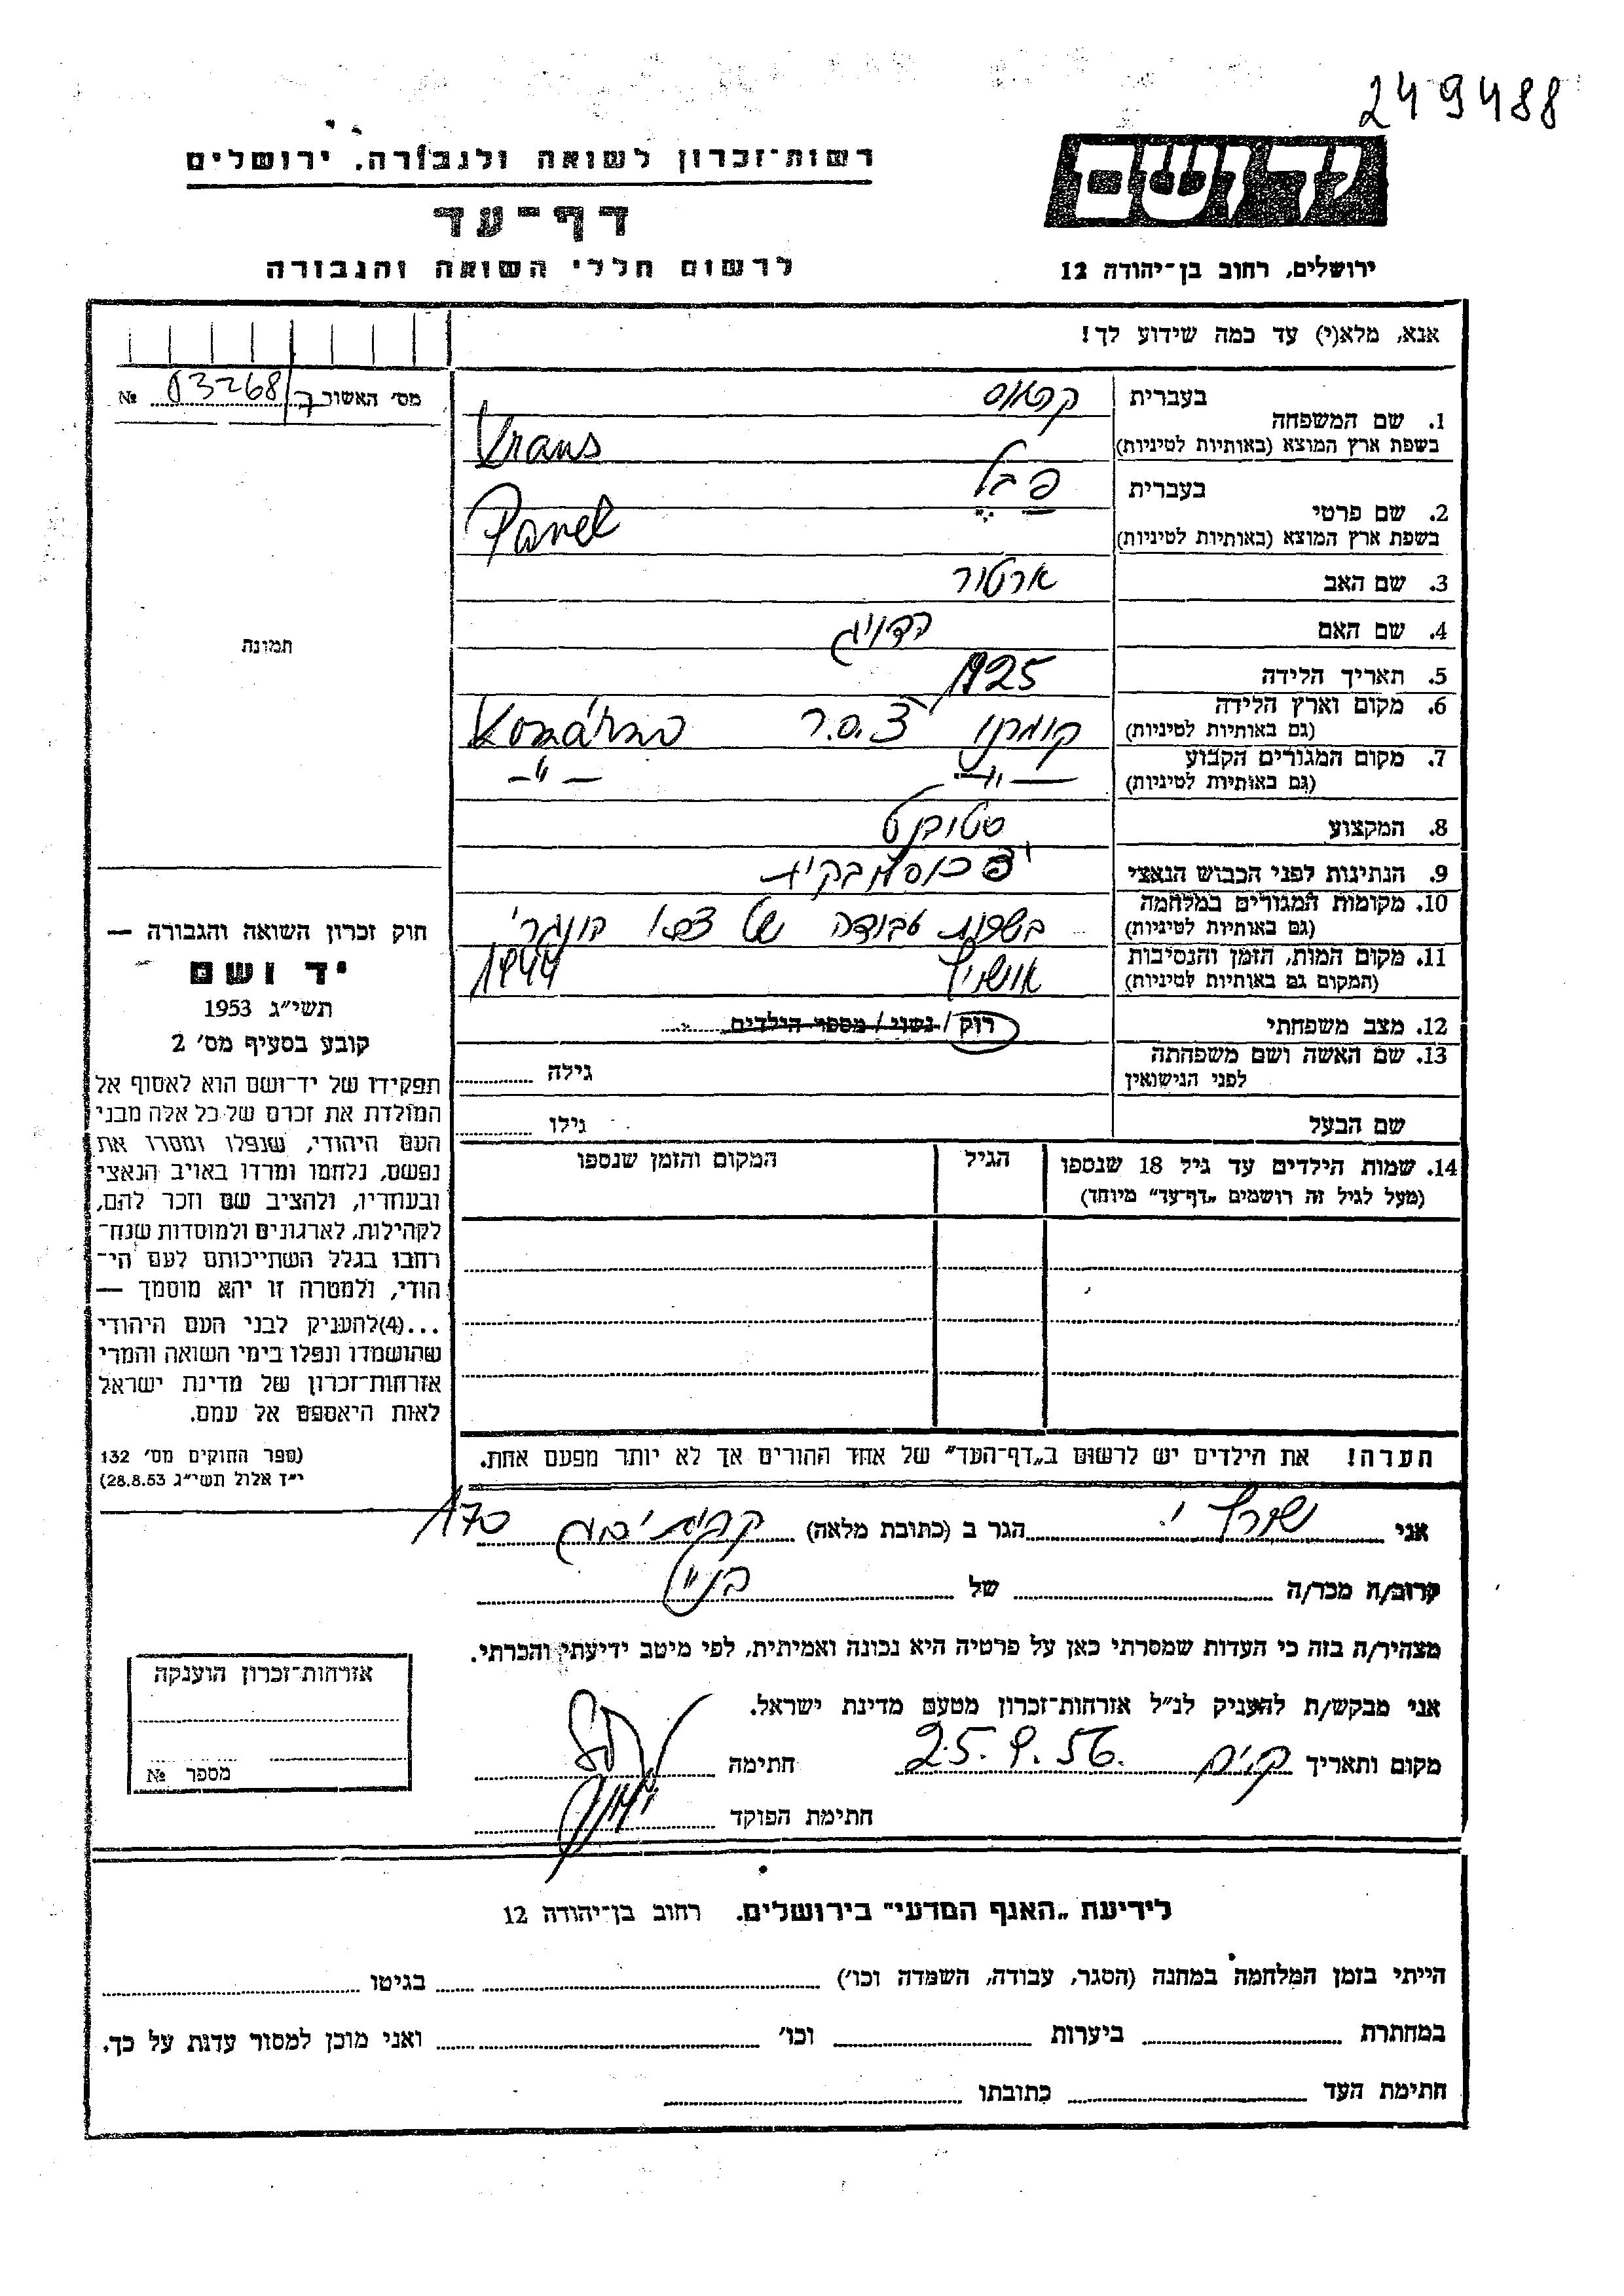 249488
רשות־זכרון לשואה ולגבורה, ירושלים
דף־עד
לרשום חללי השואה והגבורה
יד ושם
ירושלים, רחוב בן־יהודה 12
אנא, מלא(י) עד כמה שידוע לך!
מס׳ האשור 03268/7 №
בעברית
1. שם המשפחה
בשפת ארץ המוצא (באותיות לטיניות) Krans
בעברית פבל
2. שם פרטי
בשפת ארץ המוצא (באותיות לטיניות) Pavel
3. שם האב ארטור
4. שם האם הדויג
5. תאריך הלידה 1925
6. מקום וארץ הלידה קומרנו צ.ס.ר Komárno
(גם באותיות לטיניות)
7. מקום המגורים הקבוע —״— —״—
(גם באותיות לטיניות)
8. המקצוע סטודנט
9. הנתינות לפני הכבוש הנאצי
10. מקומות המגורים במלחמה עבודה של צבא הונגרי
(גם באותיות לטיניות)
11. מקום המות, הזמן והנסיבות אושויץ 1944
(המקום גם באותיות לטיניות)
12. מצב משפחתי רוק / נשוי / מספר הילדים
13. שם האשה ושם משפחתה
לפני הנישואין
גילה
שם הבעל
גילו
14. שמות הילדים עד גיל 18 שנספו
(מעל לגיל זה רושמים „דף־עד״ מיוחד)
הגיל
המקום והזמן שנספו
הערה! את הילדים יש לרשום ב„דף־העד״ של אחד ההורים אך לא יותר מפעם אחת.
תמונה
חוק זכרון השואה והגבורה —
יד ושם
תשי״ג 1953
קובע בסעיף מס׳ 2
תפקידו של יד־ושם הוא לאסוף אל
המולדת את זכרם של כל אלה מבני
העם היהודי, שנפלו ומסרו את
נפשם, נלחמו ומרדו באויב הנאצי
ובעוזריו, ולהציב שם וזכר להם,
לקהילות, לארגונים ולמוסדות שנח־
רבו בגלל השתייכותם לעם הי־
הודי, ולמטרה זו יהא מוסמך —
...(4) להעניק לבני העם היהודי
שהושמדו ונפלו בימי השואה והמרי
אזרחות־זכרון של מדינת ישראל
לאות היאספם אל עמם.
(ספר החוקים מס׳ 132
י״ד אלול תשי״ג 28.8.53)
אני הגר ב (כתובת מלאה) קרית 170
קרוב/ה מכר/ה של
מצהיר/ה בזה כי העדות שמסרתי כאן על פרטיה היא נכונה ואמיתית, לפי מיטב ידיעתי והכרתי.
אני מבקש/ת להעניק לנ״ל אזרחות־זכרון מטעם מדינת ישראל.
מקום ותאריך 25.9.56 חתימה
חתימת הפוקד
אזרחות־זכרון הוענקה
מספר №
לידיעת „האגף המדעי״ בירושלים, רחוב בן־יהודה 12
הייתי בזמן המלחמה במחנה (הסגר, עבודה, השמדה וכו׳) בגיטו
במחתרת ביערות וכו׳ ואני מוכן למסור עדות על כך.
חתימת העד כתובתו